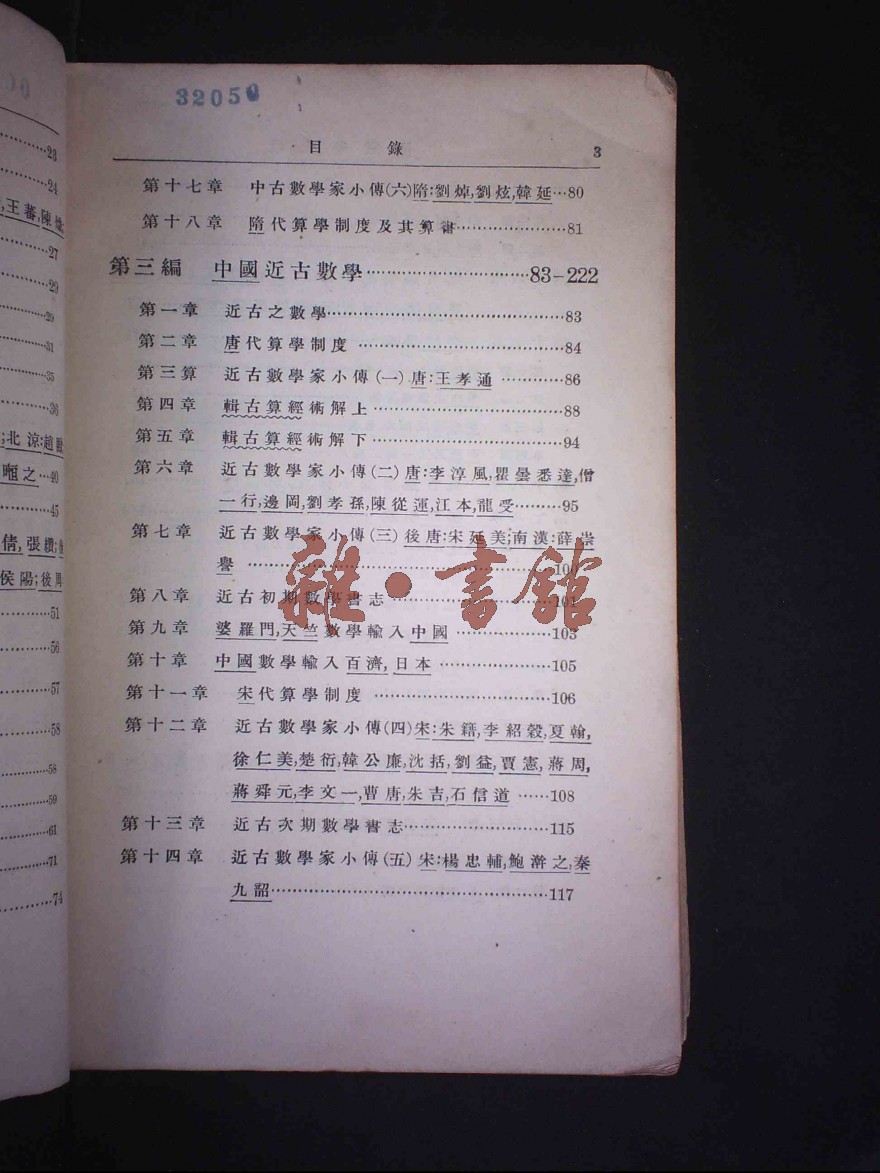 32050
目錄 3
第十七章 中古數學家小傳(六)隋:劉焯,劉炫,韓延…80
第十八章 隋代算學制度及其算書…………………81
第三編 中國近古數學…………………………83-222
第一章 近古之數學……………………………………83
第二章 唐代算學制度……………………………84
第三算 近古數學家小傳(一)唐:王孝通…………86
第四章 輯古算經術解上……………………………88
第五章 輯古算經術解下……………………………94
第六章 近古數學家小傳(二)唐:李淳風,瞿曇悉達,僧
一行,邊岡,劉孝孫,陳從運,江本,龍受………95
第七章 近古數學家小傳(三)後唐:宋延美;南漢:薛崇
譽……………………………………………100
第八章 近古初期數學書志……………………………101
第九章 婆羅門,天竺數學輸入中國………………103
第十章 中國數學輸入百濟,日本…………………105
第十一章 宋代算學制度……………………………106
第十二章 近古數學家小傳(四)宋:朱籍,李紹穀,夏翰,
徐仁美,楚衍,韓公廉,沈括,劉益,賈憲,蔣周,
蔣舜元,李文一,曹唐,朱吉,石信道……108
第十三章 近古次期數學書志………………………115
第十四章 近古數學家小傳(五)宋:楊忠輔,鮑澣之,秦
九韶………………………………………………117
雜·書館
23
24
王蕃,陳
27
29
29
31
35
36
北涼:趙𢾺
暅之…40
45
倩,張纘;
侯陽;後周
51
56
57
58
58
59
61
71
74